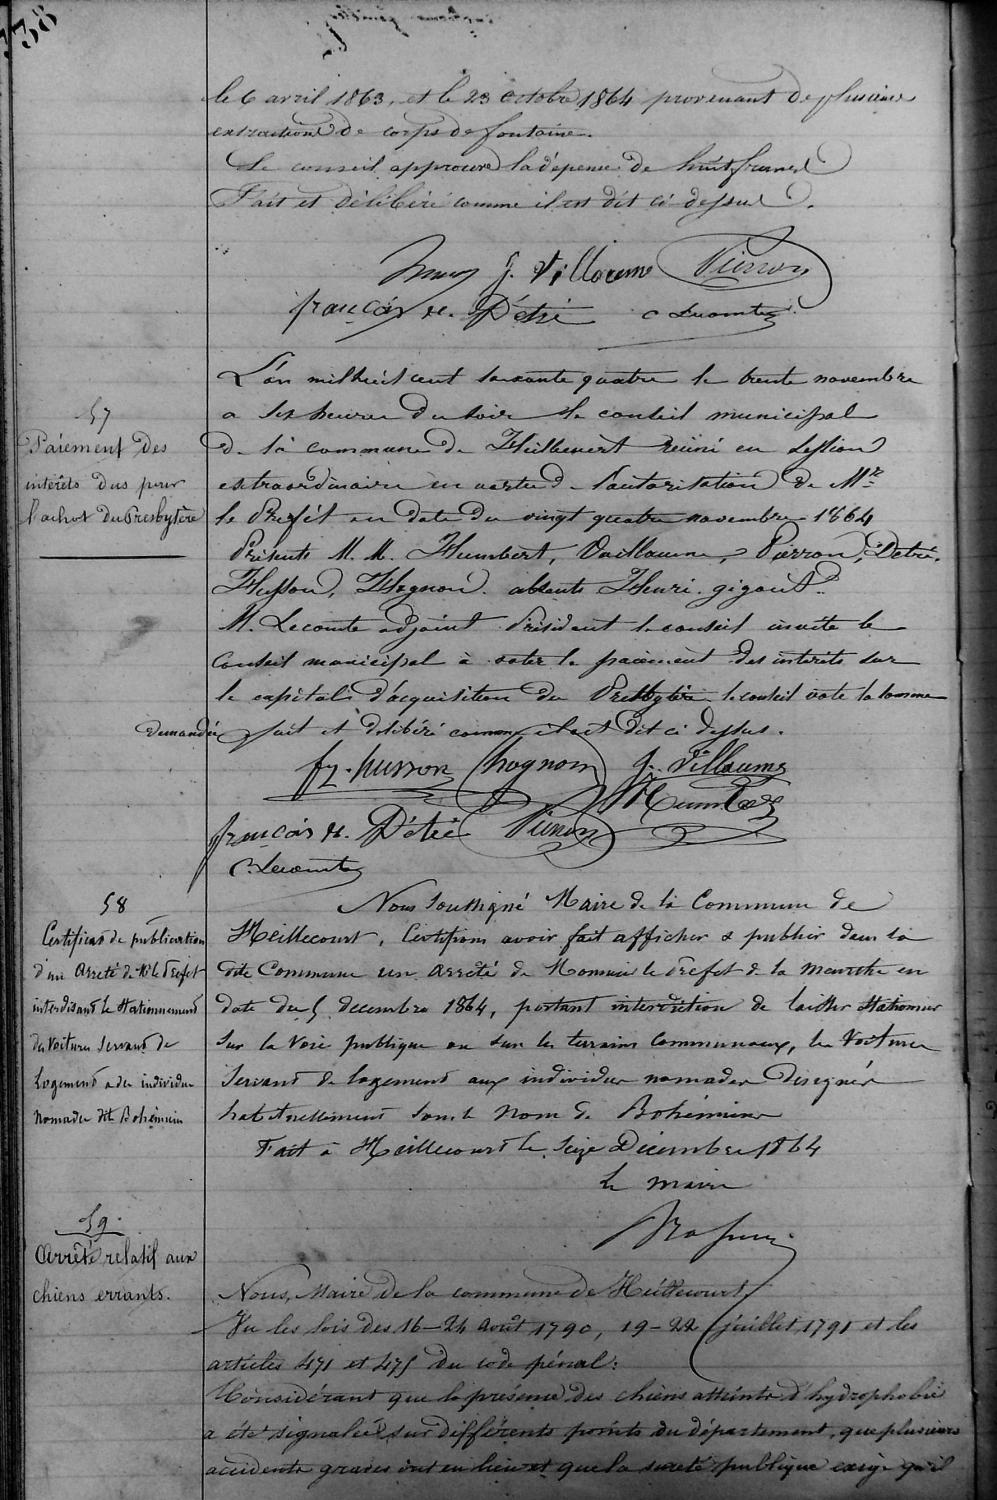 le 6 avril 1863, et le 23 octobre 1864 provenant de plusieurs
extractions de corps de fontaine.
Le conseil approuve la dépense de huit francs
Fait et délibéré comme il est dit ci dessus.
J. Villaume Pierron
françois x. Détré C Lecomte
57
Paiement des
intérêts dus pour
l'achat du Presbytère
L'an mil huit cent soixante quatre le trente novembre
a six heures du soir le conseil municipal
de la commune de Heillecourt réuni en session
extraordinaire en vertu de l'autorisation de Mr
le Préfet en date du vingt quatre novembre 1864
Présents M. M. Humbert, Vuillaume, Pierron, Détré,
Husson, Hognon. absents Henri. gigout
M. Lecomte adjoint Président le conseil invite le
Conseil municipal à voter le paiement des intérêts sur
le capital d'acquisition du Presbytère le conseil vote la somme
demandée fait et délibéré comme il est dit ci dessus.
fz. husson hognon J. Villaume
Humbert
françois x. Détré Pierron
C. Lecomte
58
Certificat de publication
d'un Arrêté de Mr le Préfet
interdisant le Stationnement
des voitures servant de
logement a des individus
nomades dit Bohémiens
Nous Soussigné Maire de la Commune de
Heillecourt, Certifions avoir fait afficher & publier dans la
dite Commune un arrêté de Monsieur le Préfet de la Meurthe en
date du 5 decembre 1864, portant interdiction de laisser Stationner
Sur la Voie publique ou sur les terrains Communaux, les Voitures
Servant de logement aux individus nomades Désignés
habituellement sous le nom de Bohémiens
Fait à Heillecourt le Seize Décembre 1864
Le Maire
59.
Arrêté relatif aux
chiens errants.
Nous, Maire de la commune de Heillecourt
Vu les lois des 16-24 Août 1790, 19-22 juillet 1791 et les
articles 471 et 475 du code pénal:
Considérant que la présence des chiens atteints d'hydrophobie
a été signalée sur différents points du département, que plusieurs
accidents graves ont eu lieu et que la sureté publique exige qu'il